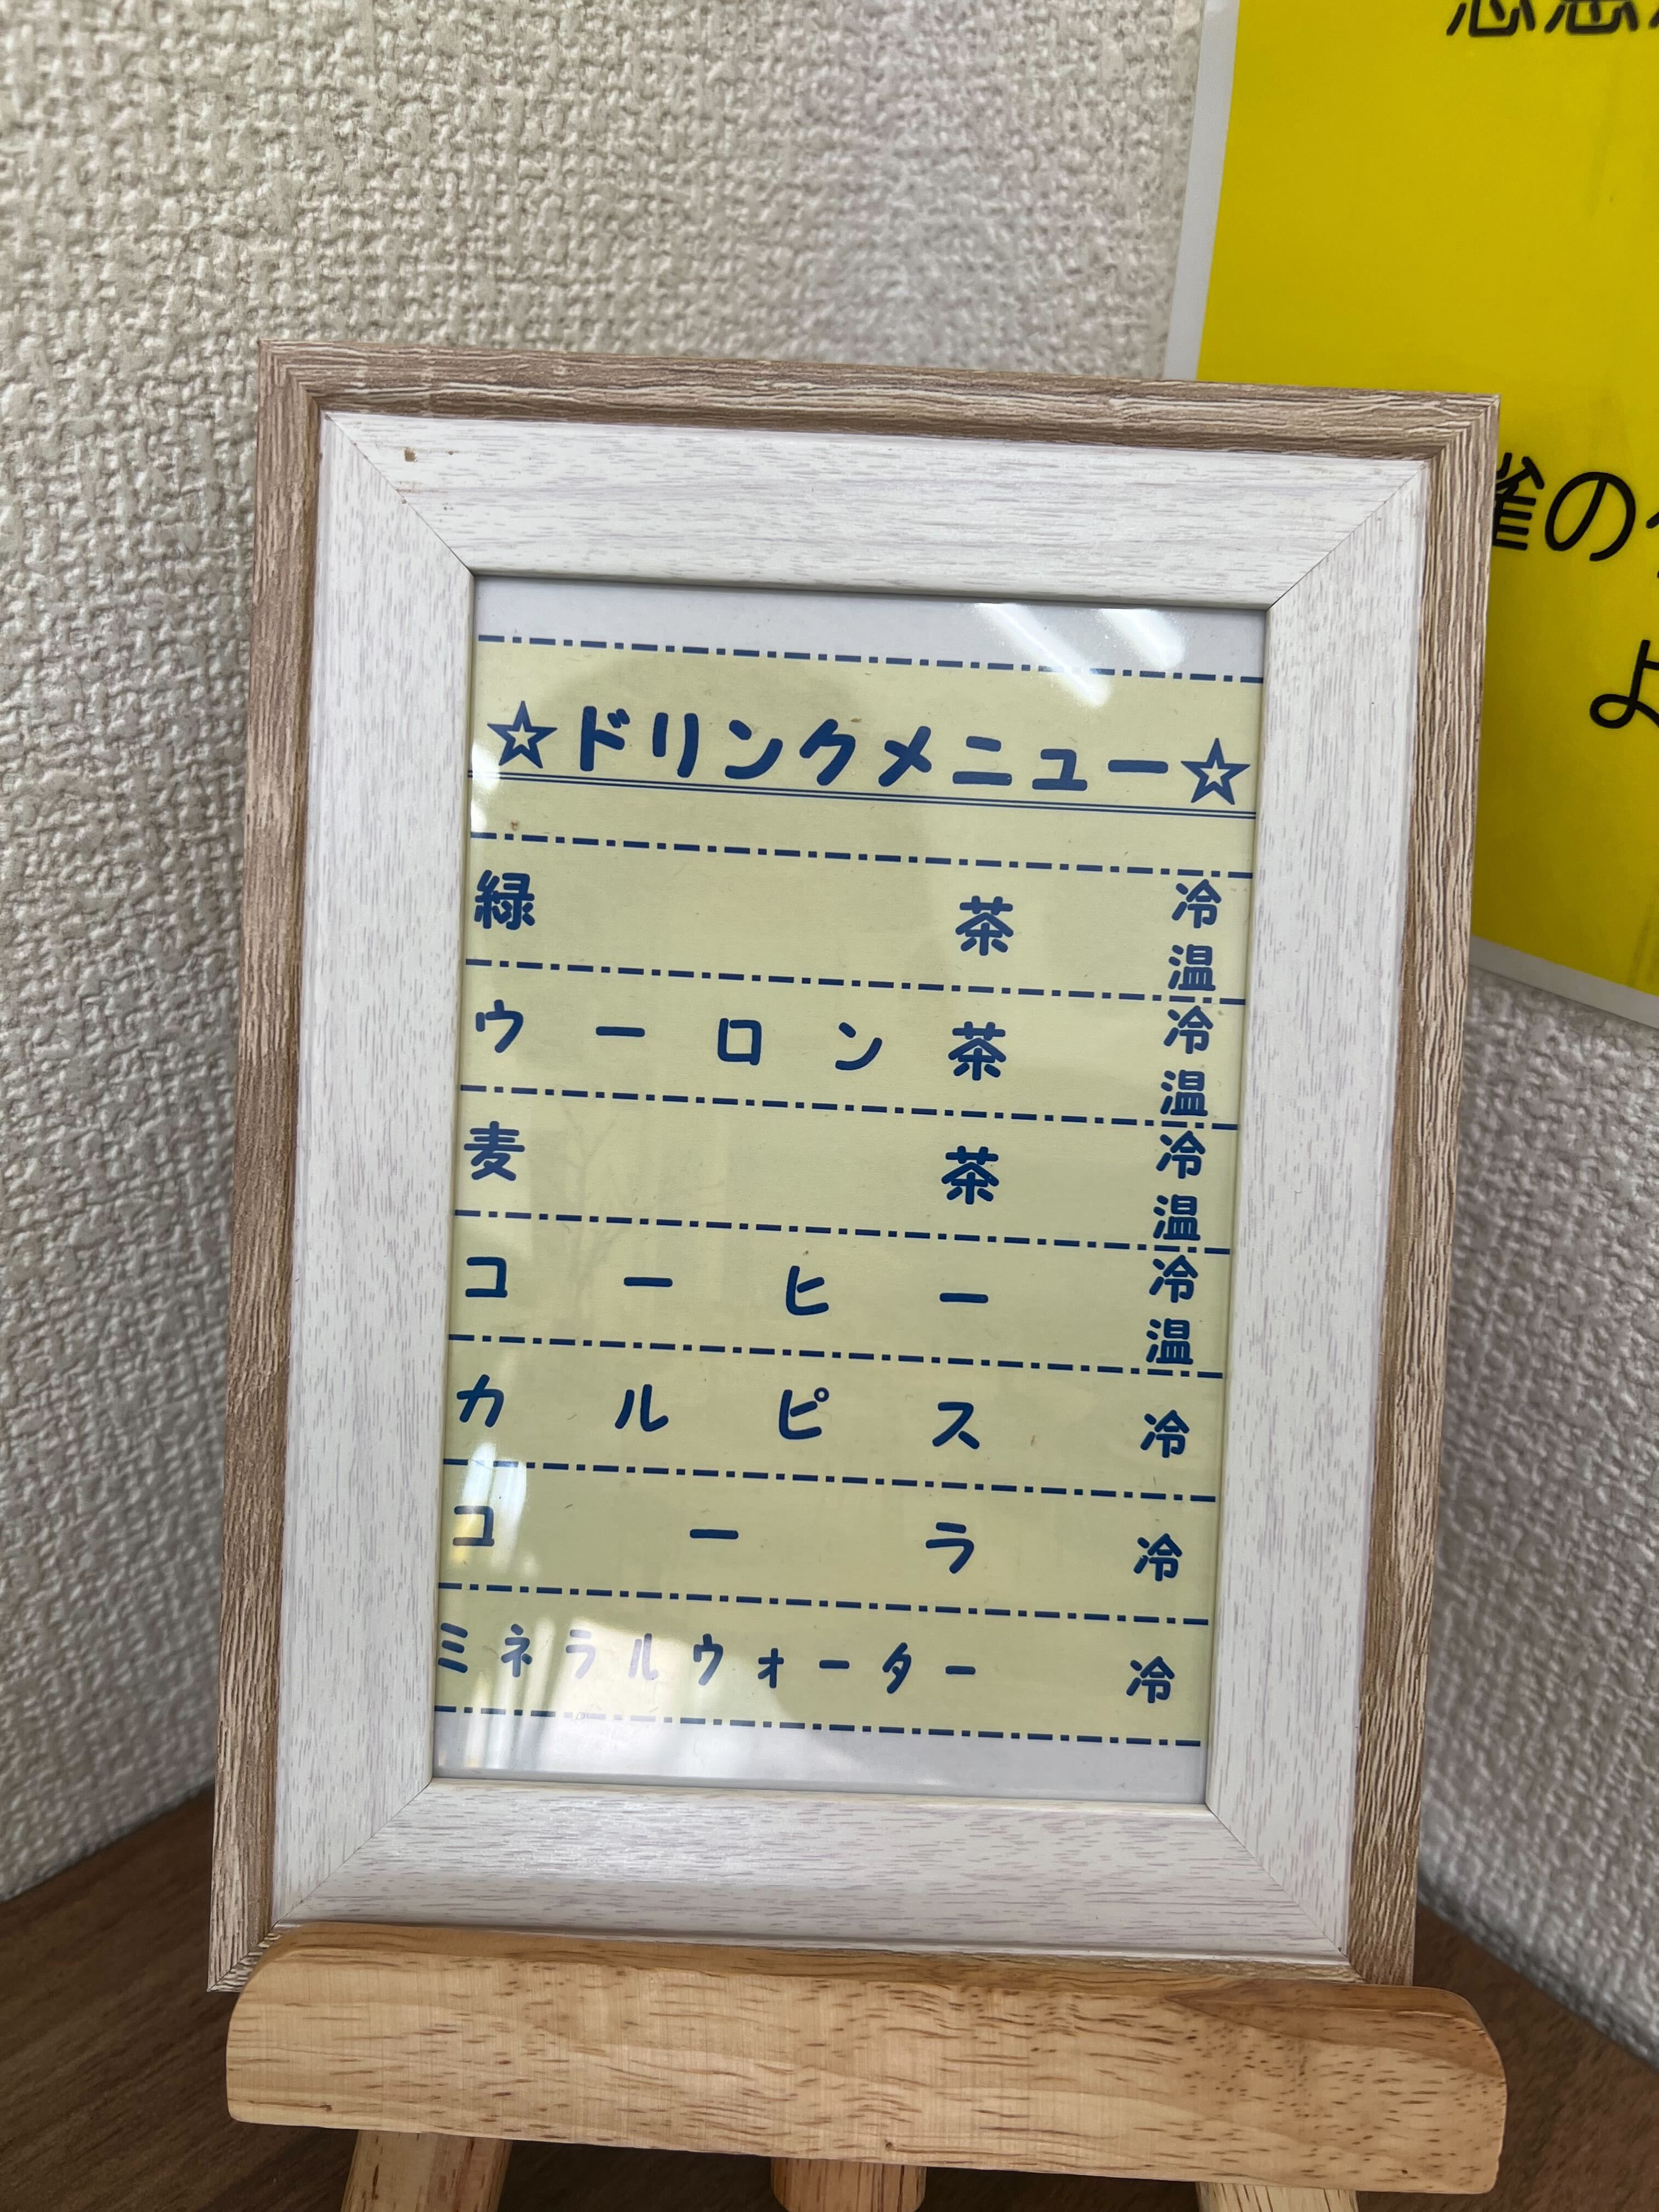 ☆ドリンクメニュー☆
緑茶 冷
温
ウーロン茶 冷
温
麦茶 冷
温
コーヒー 冷
温
カルピス 冷
コーラ 冷
ミネラルウォーター 冷
雀の
よ